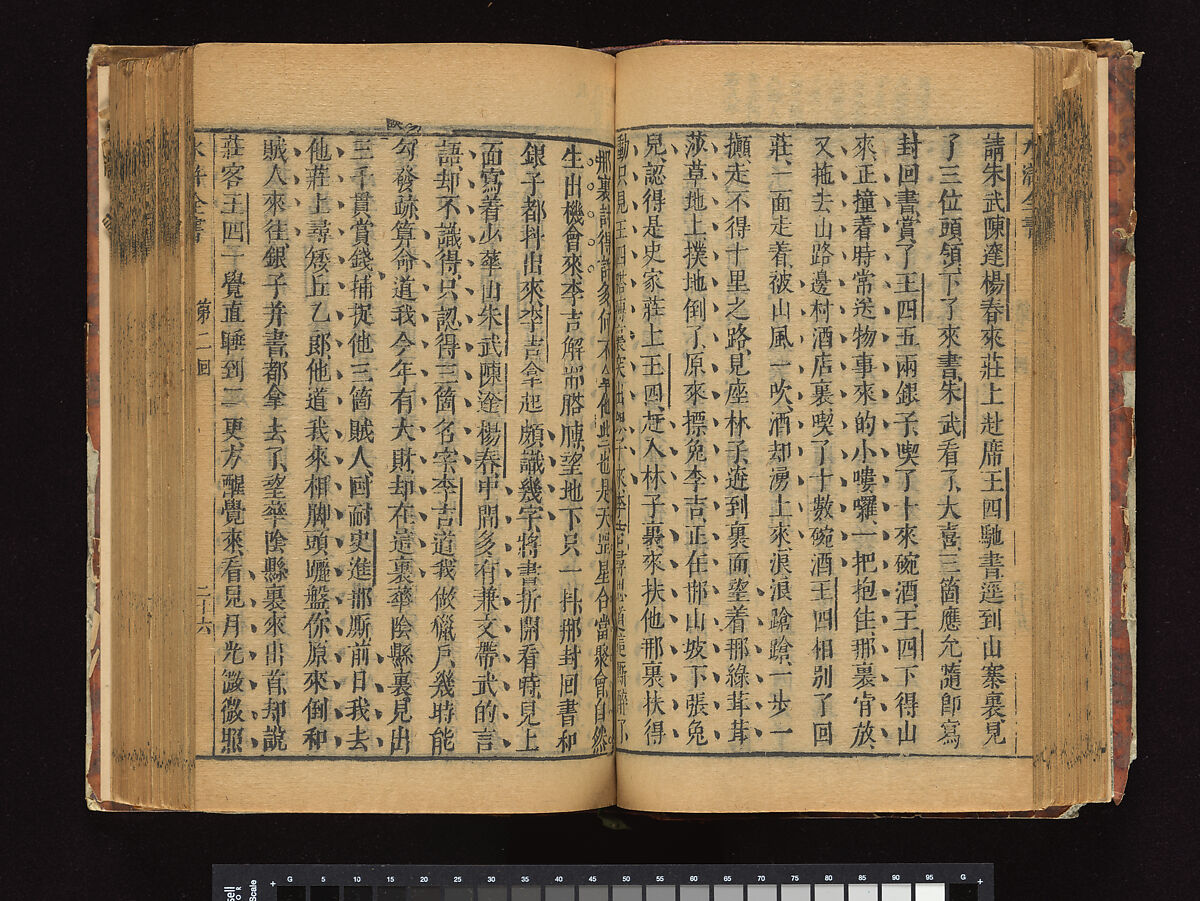 請朱武陳達楊春來莊上赴席王四馳書逕到山寨裏見
了三位頭領下了來書朱武看了大喜三箇應允隨即寫
封回書賞了王四五兩銀子喫了十來碗酒王四下得山
來正撞着時常送物事來的小嘍囉一把抱住那裏肯放
又拖去山路邊村酒店裏喫了十數碗酒王四相別了回
莊一面走着被山風一吹酒却湧上來浪浪蹌蹌一步一
攧走不得十里之路見座林子逩到裏面望着那綠茸茸
莎草地上撲地倒了原來摽兔李吉正在那山坡下張兔
兒認得是史家莊上王四赶入林子裏來扶他那裏扶得
動只見王四
那裏討得許多何不拿他些也是天罡星合當聚會自然
生出機會來李吉解那胳膊望地下只一抖那封回書和
銀子都抖出來李吉拿起頗識幾字將書拆開看時見上
面寫着少華山朱武陳達楊春中間多有兼文帶武的言
語却不識得只認得三箇名字李吉道我做獵戶幾時能
勾發跡算命道我今年有大財却在這裏華陰縣裏見出
三千貫賞錢捕捉他三箇賊人叵耐史進那厮前日我去
他莊上尋矮丘乙郎他道我來相脚頭躧盤你原來倒和
賊人來往銀子并書都拿去了望華陰縣裏來出首却說
莊客王四一覺直睡到二更方醒覺來看見月光微微照
水滸全書
第二回
二十六
G 5 10 15 20 25 30 35 40 45 50 55 60 65 70 75 80 85 90 95 G
Scale